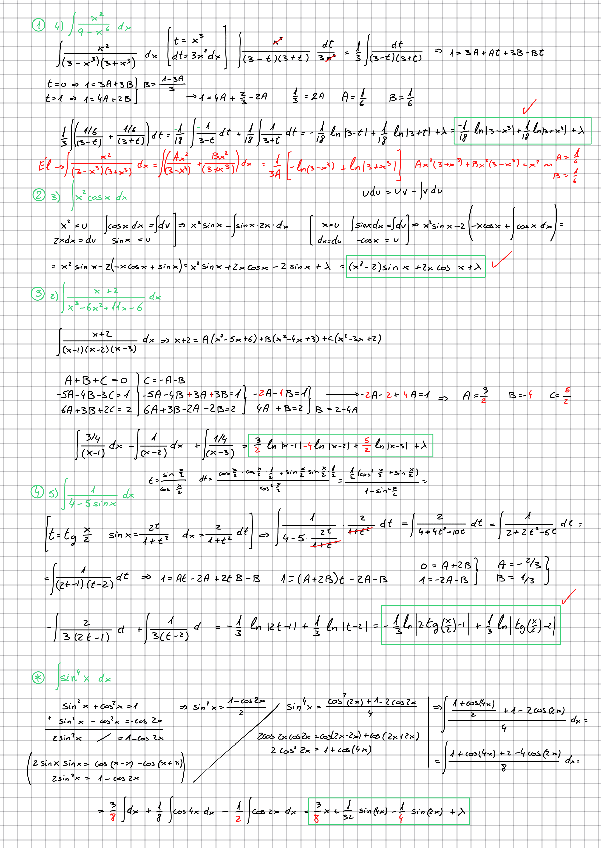 ① 4) ∫ x²/(9-x⁶) dx
∫ x²/((3-x³)(3+x³)) dx [t = x³ dt = 3x²dx] ∫ x²/((3-t)(3+t)) dt/3x² = 1/3 ∫ dt/((3-t)(3+t)) ⇒ 1 = 3A + At + 3B - Bt
t=0 ⇒ 1=3A+3B } B = (1-3A)/3
t=1 ⇒ 1=4A+2B → 1=4A + 2/3 - 2A 1/3 = 2A A = 1/6 B = 1/6
1/3 ∫ ((1/6)/(3-t) + (1/6)/(3+t)) dt = 1/18 ∫ 1/(3-t) dt + 1/18 ∫ 1/(3+t) dt = -1/18 ln|3-t| + 1/18 ln|3+t| + λ = -1/18 ln|3-x³| + 1/18 ln|3+x³| + λ
El → ∫ x²/((3-x³)(3+x³)) dx = ∫ (Ax²/(3-x³) + Bx²/(3+x³)) dx = 1/3A [-ln(3-x³) + ln(3+x³)] Ax²(3+x³) + Bx²(3-x³) = x² A = 1/6 B = 1/6
② 3) ∫ x² cosx dx
∫ u dv = uv - ∫ v du
x² = u ∫ cosx dx = ∫ dv ⇒ x² sinx - ∫ sinx · 2x · dx [x = u ∫ sinx dx = ∫ dv ⇒ x² sinx - 2(-x cosx + ∫ cosx dx) =
2xdx = du sinx = v dx = du -cosx = v
= x² sinx - 2(-x cosx + sinx) = x² sinx + 2x cosx - 2 sinx + λ = (x²-2) sin x + 2x cos x + λ
③ 2) ∫ (x+2)/(x³-6x²+11x-6) dx
∫ (x+2)/((x-1)(x-2)(x-3)) dx ⇒ x+2 = A(x²-5x+6) + B(x²-4x+3) + C(x²-3x+2)
A+B+C=0 } C=-A-B
-5A-4B-3C=1 } -5A-4B+3A+3B=1 } -2A-1B=1 } → -2A-2+4A=1 ⇒ A = 3/2 B=-4 C = 5/2
6A+3B+2C=2 } 6A+3B-2A-2B=2 } 4A+B=2 } B=2-4A
∫ (3/4)/(x-1) dx - ∫ 1/(x-2) dx + ∫ (1/4)/(x-3) = 3/2 ln|x-1| - 4 ln|x-2| + 5/2 ln|x-3| + λ
④ 5) ∫ 1/(4-5sinx) dx
[t = tg x/2 sinx = 2t/(1+t²) dx = 2/(1+t²) dt] ⇒ ∫ 1/(4-5·2t/(1+t²)) · 2/(1+t²) dt = ∫ 2/(4+4t²-10t) dt = ∫ 1/(2+2t²-5t) dt =
= ∫ 1/((2t-1)(t-2)) dt ⇒ 1 = At - 2A + 2tB - B 1 = (A+2B)t - 2A - B 0 = A+2B } A = -2/3
1 = -2A-B } B = 1/3
-∫ 2/(3(2t-1)) d + ∫ 1/(3(t-2)) d = -1/3 ln|2t-1| + 1/3 ln|t-2| = -1/3 ln|2tg(x/2)-1| + 1/3 ln|tg(x/2)-2|
⊛ ∫ sin⁴x dx
sin²x + cos²x = 1 ⇒ sin²x = (1-cos2x)/2 sin⁴x = (cos²(2x)+1-2cos2x)/4 ⇒ ∫ ((1+cos(4x))/2 + 1 - 2cos(2x))/4 dx =
+ sin²x - cos²x = -cos 2x
2sin²x / = 1-cos2x 2cos2xcos2x = cos(2x-2x) + cos(2x+2x)
2cos²2x = 1+cos(4x)
(2 sinx sinx = cos(x-x) - cos(x+x) 2sin²x = 1-cos2x) = ∫ (1+cos(4x)+2-4cos(2x))/8 dx =
= 3/8 ∫ dx + 1/8 ∫ cos4x dx - 1/2 ∫ cos2x dx = 3/8 x + 1/32 sin(4x) - 1/4 sin(2x) + λ